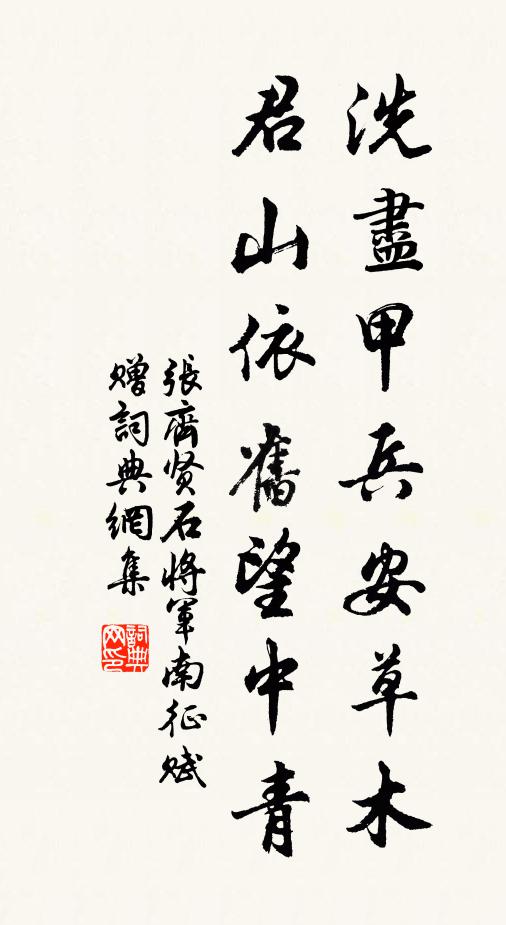 洗盡甲兵安草木
君山依舊望中青
張齊贤石将軍南征赋
赠詞典網集
詞典
网印